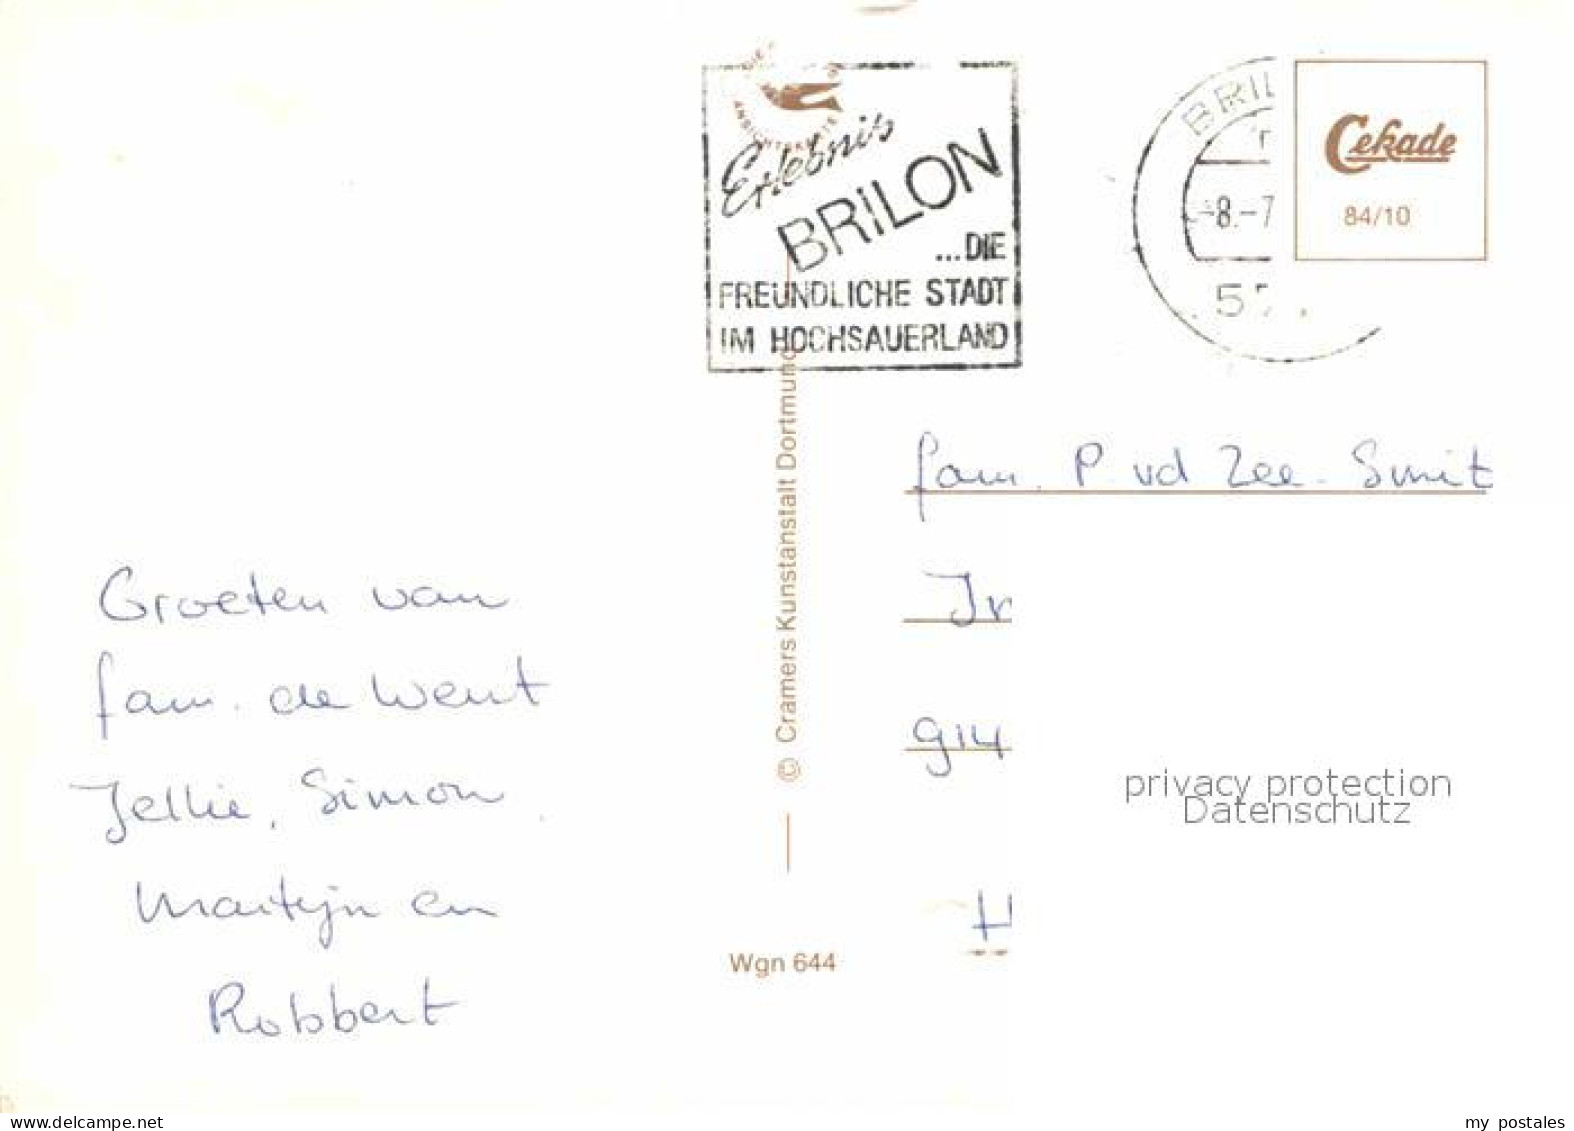 Erlebnis
BRILON
...DIE
FREUNDLICHE STADT
IM HOCHSAUERLAND
BRIL
-8.-7
Cekade
84/10
fam. P. vd Zee-Smit
914
H
privacy protection
Datenschutz
Groeten van
fam. de Went
Jellie, Simon
Martijn en
Robbert
© Cramers Kunstanstalt Dortmund
Wgn 644
www.delcampe.net
my postales